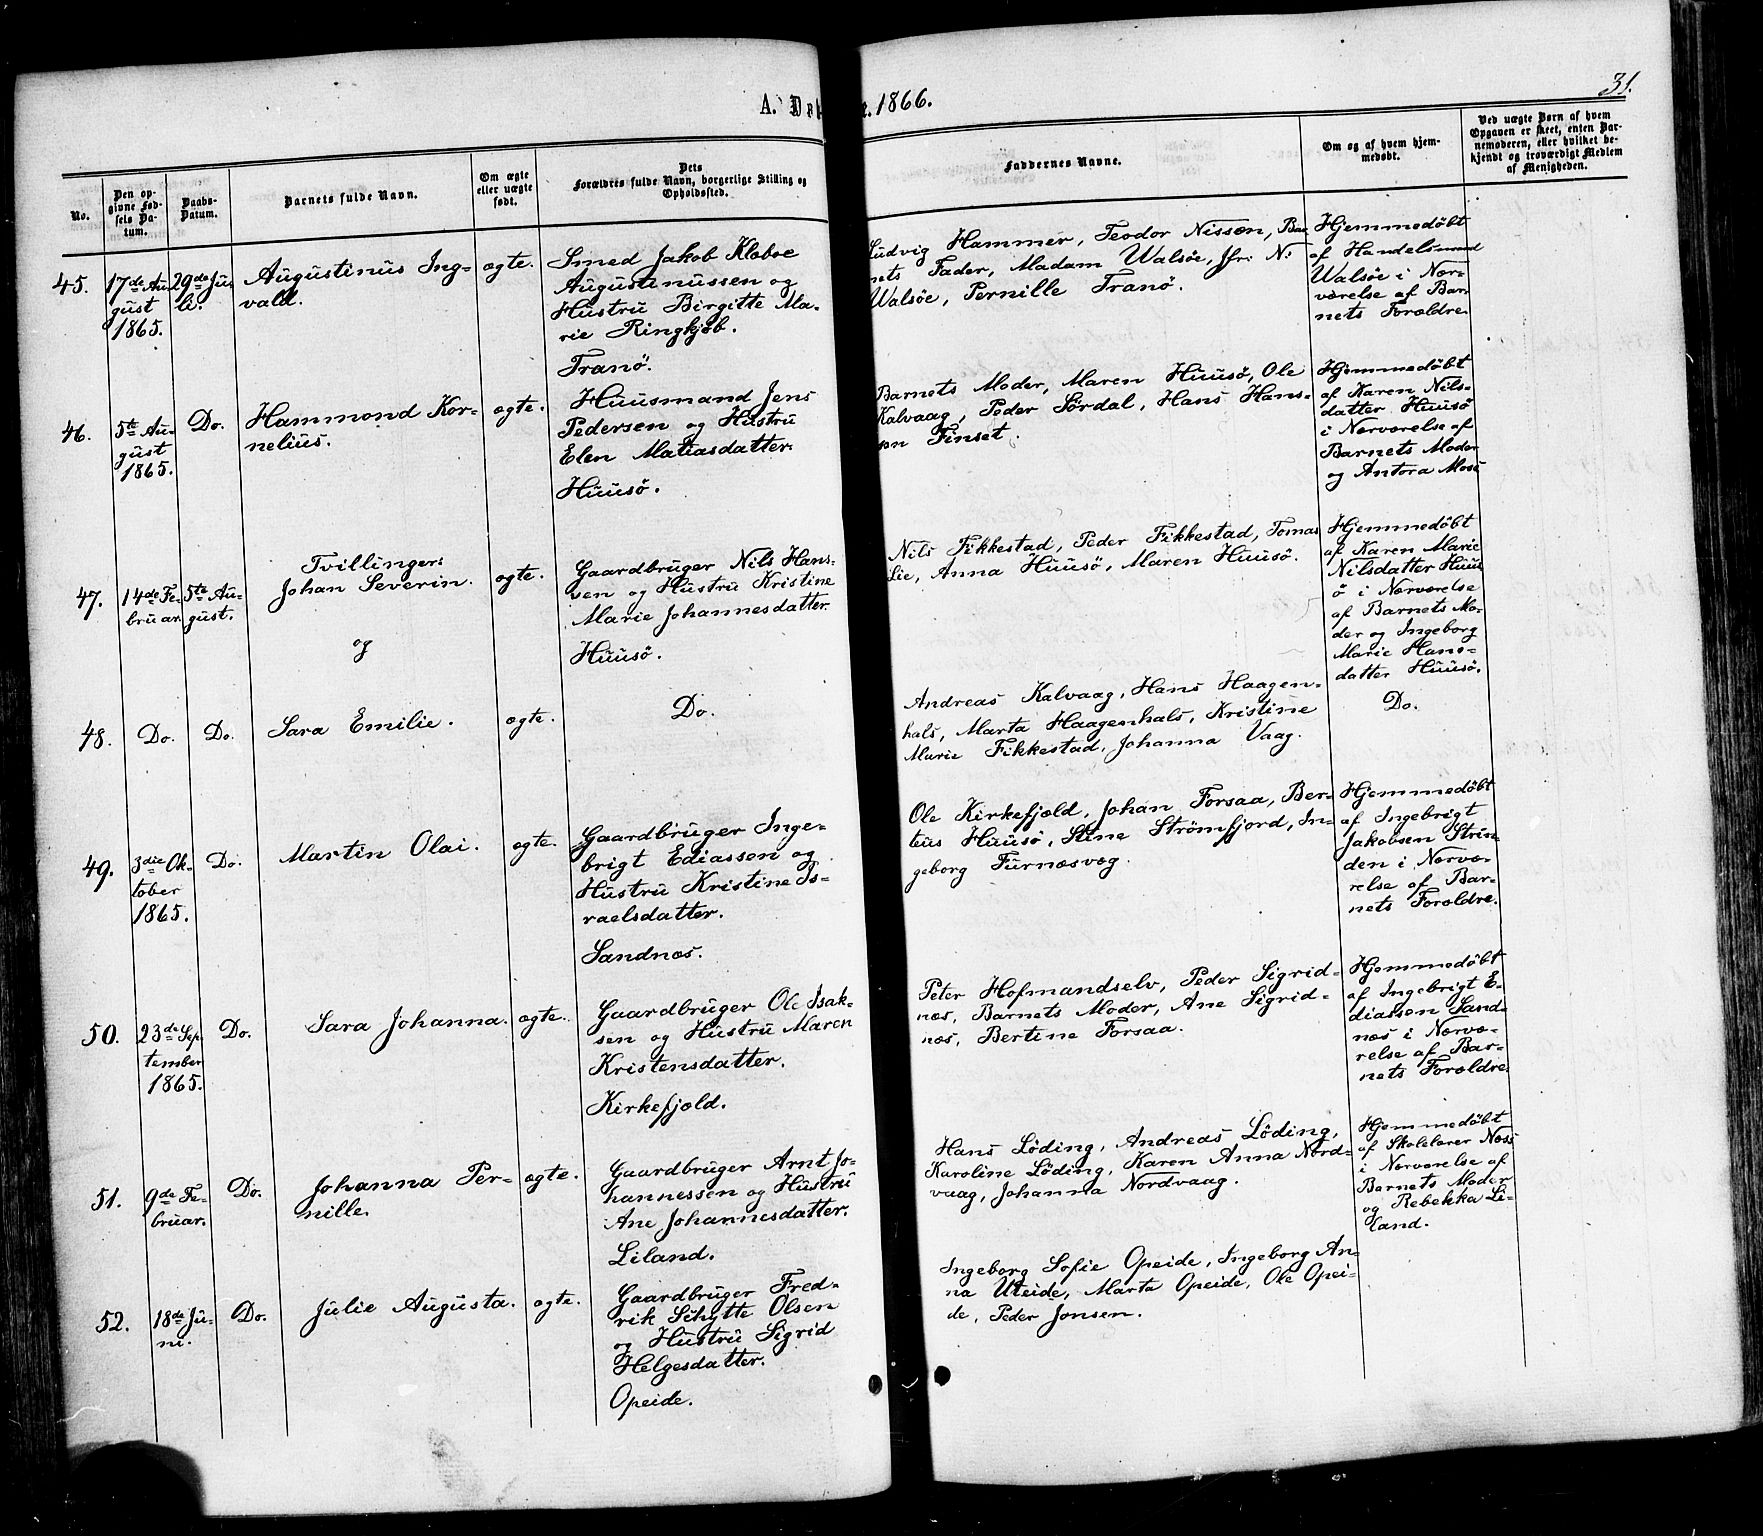 A. Dø
e. 1866.
31.
No.
Den op-
givne Fød-
sels Da-
tum.
Daabs-
Datum.
Barnets fulde Navn.
Om ægte
eller uægte
født.
Dets
Forældres fulde Navn, borgerlige Stilling og
Opholdssted.
Faddernes Navne.
Om og af hvem hjem-
medøbt.
Ved uægte Børn af hvem
Opgaven er skeet, enten Bar-
nemoderen, eller hvilket be-
kjendt og troværdigt Medlem
af Menigheden.
45.
17de Au-
gust
1865.
29de Ju-
li.
Augustinus Ing-
vald.
ægte.
Smed Jakob Klæboe
Augustinussen og
Hustru Birgitte Ma-
rie Ringkjøb.
Tranö.
Ludvig Hammer, Teodor Nissen, Bar-
nets Fader, Madam Walsöe, Jfr. N:
Walsöe, Pernille Tranö.
Hjemmedöbt
af Handelsmand
Walsöe i Nær-
værelse af Bar-
nets Forældre.
46.
5te Au-
gust
1865.
Do.
Hammond Kor-
nelius.
ægte.
Huusmand Jens
Pedersen og Hustru
Elen Matiasdatter.
Huusö.
Barnets Moder, Maren Huusö, Ole
Kalvaag, Peder Sördal, Hans Hans-
en Finset.
Hjemmedöbt
af Karen Nils-
datter Huusö
i Nærværelse af
Barnets Moder
og Antora Mosö
47.
14de Fe-
bruar.
5te Au-
gust.
Tvillinger:
Johan Severin.
og
ægte.
Gaardbruger Nils Hans-
sen og Hustru Kristine
Marie Johannesdatter.
Huusö.
Nils Fikkestad, Peder Fikkestad, Tomas
Lie, Anna Huusö, Maren Huusö.
Hjemmedöbt
af Karen Marie
Nilsdatter Huus-
ö i Nærværelse
af Barnets Mo-
der og Ingeborg
Marie Hans-
datter Huusö.
48.
Do.
Do.
Sara Emilie.
ægte.
Do.
Andreas Kalvaag, Hans Haagen-
hals, Marta Haagenhals, Kristine
Marie Fikkestad, Johanna Vaag.
Do.
49.
3die Ok-
tober
1865.
Do.
Martin Olai.
ægte.
Gaardbruger Inge-
brigt Ediassen og
Hustru Kristine Is-
raelsdatter.
Sandnæs.
Ole Kirkefjæld, Johan Forsaa, Ber-
teus Huusö, Stine Strömfjord, In-
geborg Furnæsvæg.
Hjemmedöbt
af Ingebrigt
Jakobsen Strin-
den i Nærvæ-
relse af Bar-
nets Forældre.
50.
23de Sep-
tember
1865.
Do.
Sara Johanna.
ægte.
Gaardbruger Ole Isak-
sen og Hustru Maren
Kristensdatter.
Kirkefjæld.
Peter Hofmandselv, Peder Sigrid-
næs, Barnets Moder, Ane Sigrid-
næs, Bertine Forsaa.
Hjemmedöbt
af Ingebrigt E-
diassen Sand-
næs i Nærvæ-
relse af Bar-
nets Forældre.
51.
9de Fe-
bruar.
Do.
Johanna Per-
nille.
ægte.
Gaardbruger Arnt Jo-
hannessen og Hustru
Ane Johannesdatter.
Liland.
Hans Löding, Andreas Löding,
Karoline Löding, Karen Anna Nord-
vaag, Johanna Nordvaag.
Hjemmedöbt
af Skolelærer Næss
i Nærværelse af
Barnets Moder
og Rebekka Li-
land.
52.
18de Ju-
ni.
Do.
Julie Augusta.
ægte.
Gaardbruger Fred-
rik Schytte Olsen
og Hustru Sigrid
Helgesdatter.
Opeide.
Ingeborg Sofie Opeide, Ingeborg An-
na Uteide, Marta Opeide, Ole Opei-
de, Peder Jonsen.